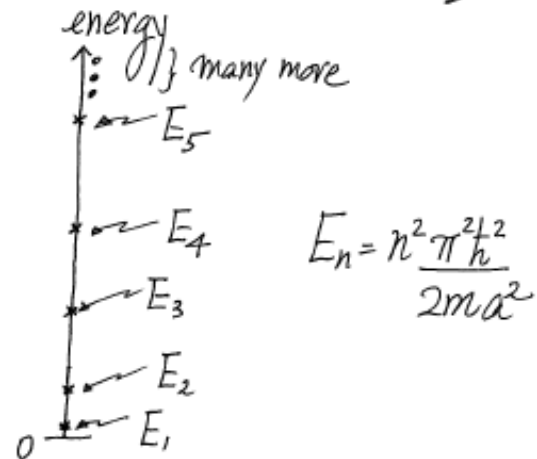 energy
} many more
E₅
E₄
Eₙ = n² π²ħ² / 2ma²
E₃
E₂
E₁
0